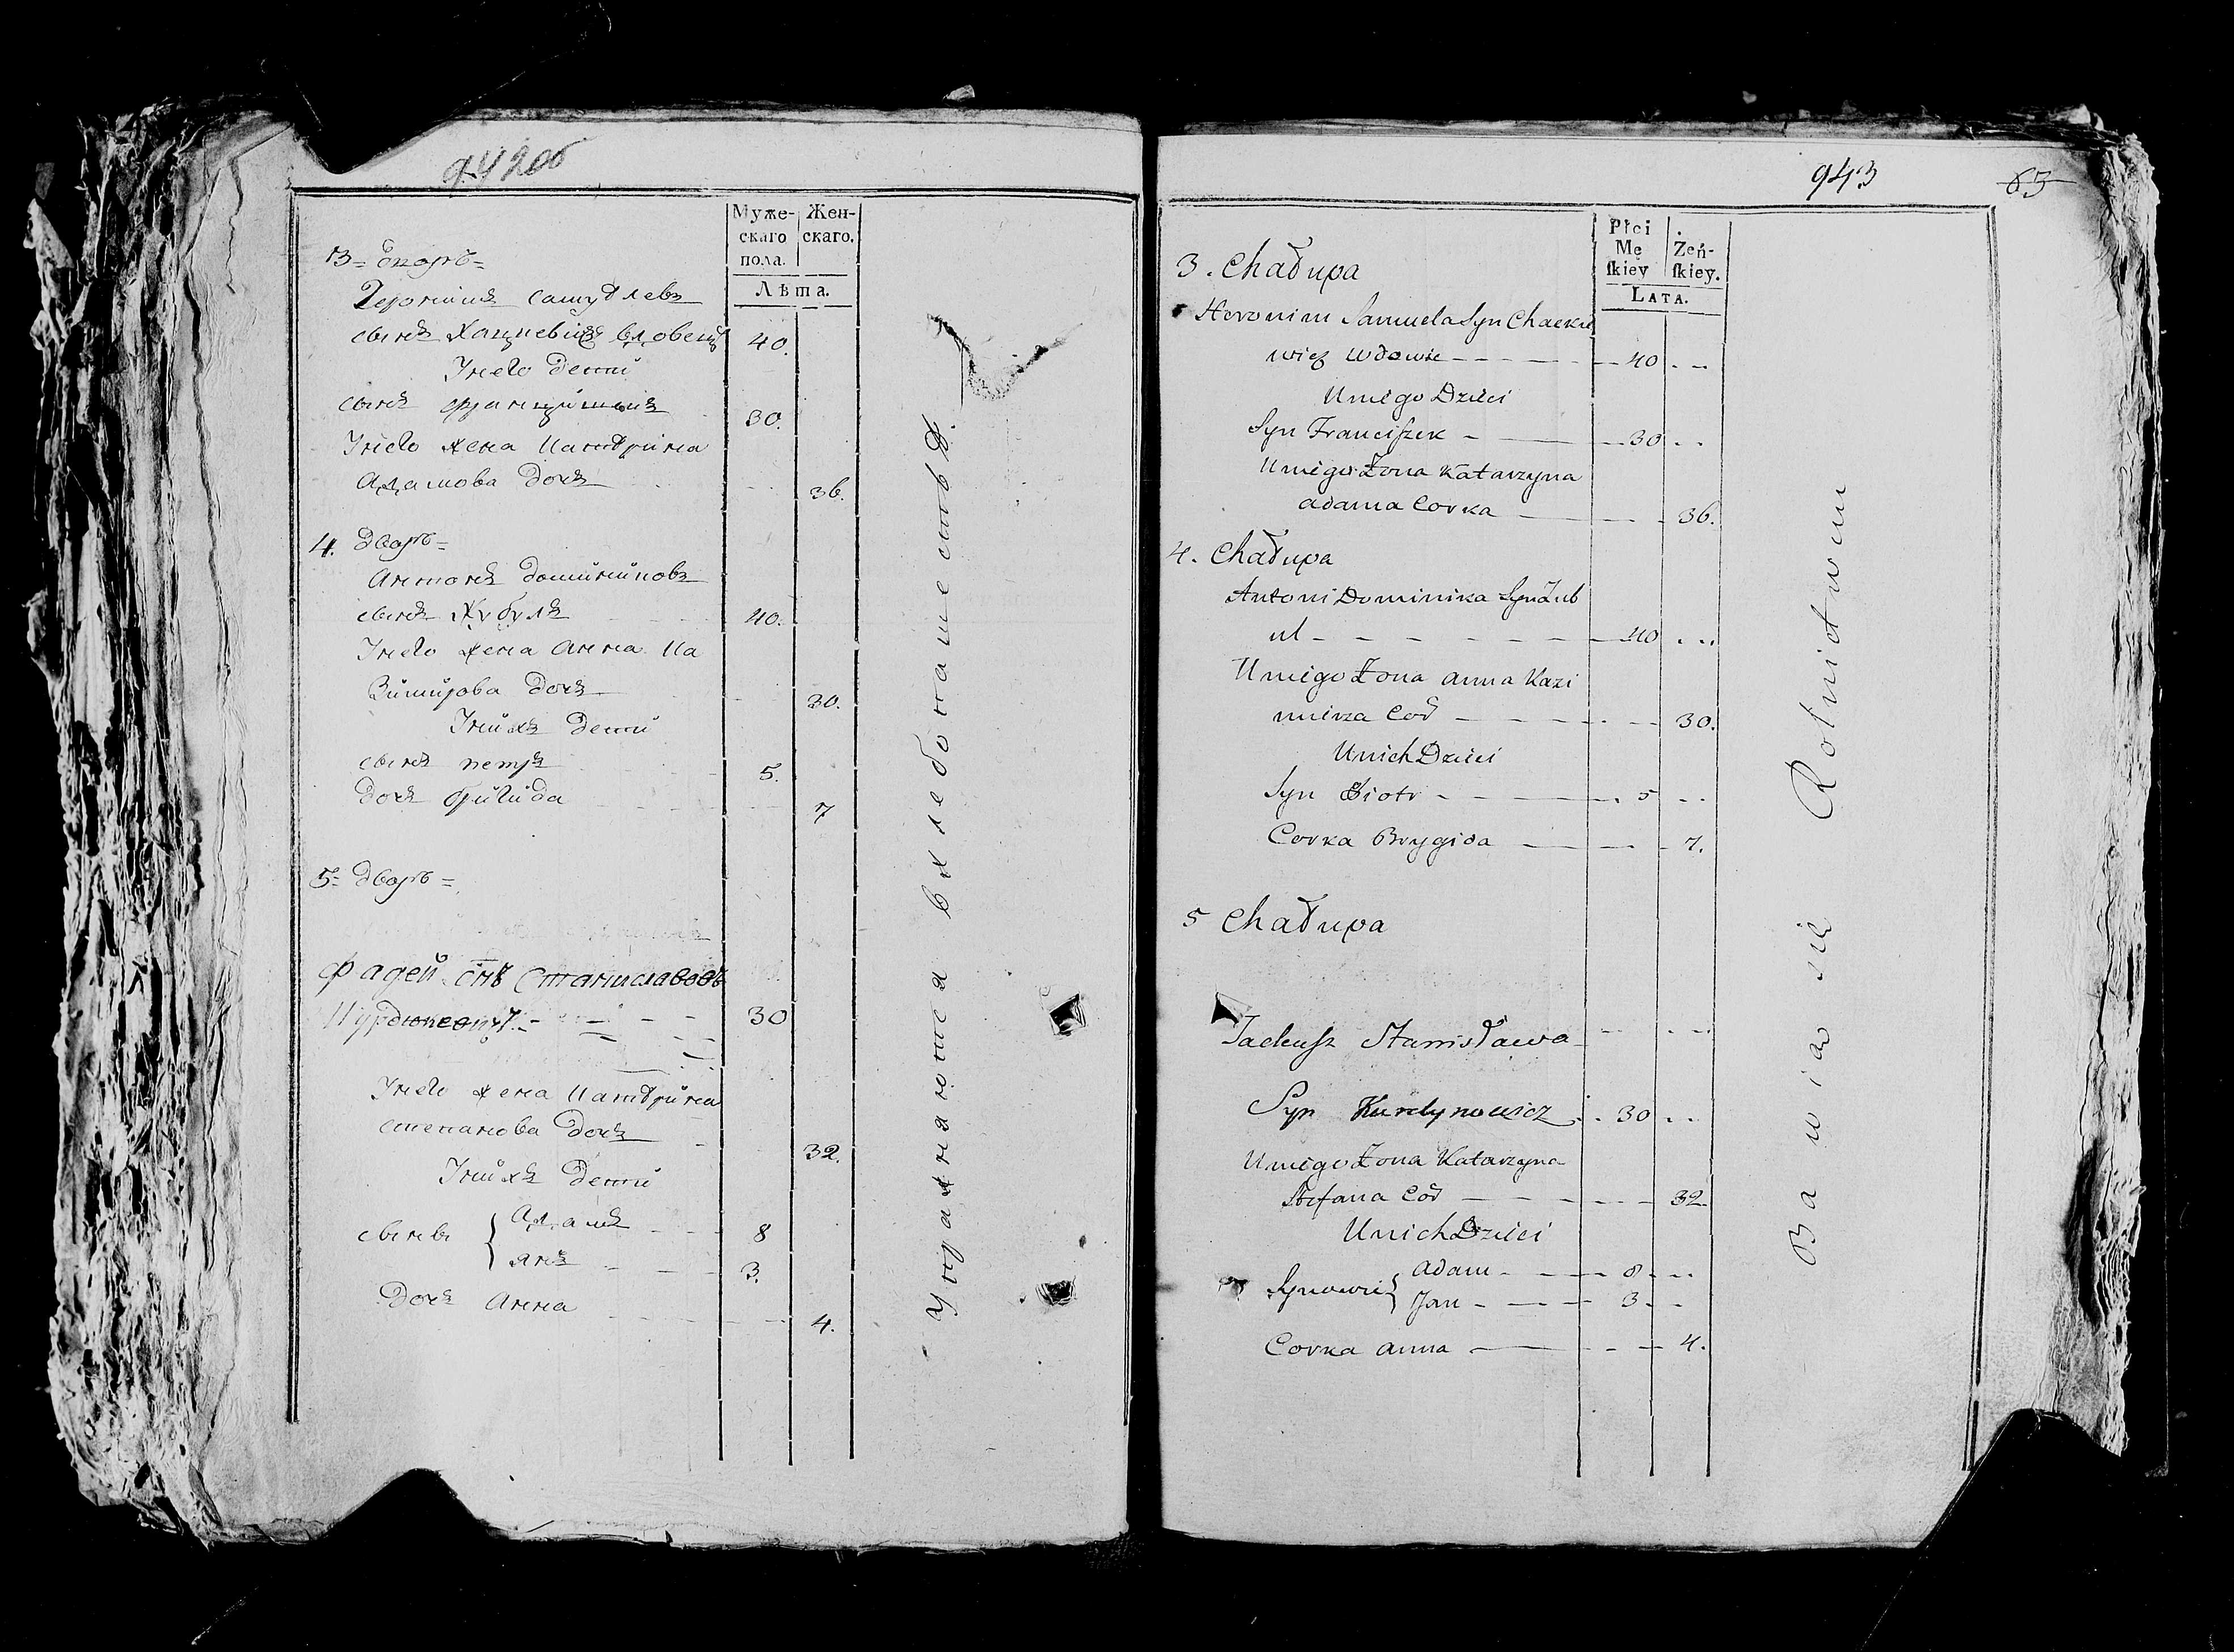 942об
Муже-
скаго
пола.
Жен-
скаго.
Лѣта.
3 = Дворъ =
Геронимъ Самуэлевъ
сынъ Хацкевичъ вдовецъ 40.
У него дети
сынъ Францишекъ 30.
У него жена Катэрина
Адамова дочь 36.
4. Дворъ =
Антонъ Доминиковъ
сынъ Жубулъ 40.
У него жена Анна Ка
зимирова дочь 30.
У нихъ дети
сынъ Петръ 5.
дочь Бригида 7
5 = Дворъ =
Фадей снъ Станиславовъ
30
У него жена Катэрина
Степанова дочь 32.
У нихъ дети
сынове { Адамъ 8
Янъ 3.
дочь Анна 4.
Упражняются в хлебопашестве.
943
63
Płci
Mę
ſkiey
Żeń-
ſkiey.
LATA.
3. Chałupa
Heronim Samuela Syn Chackie
wicz wdowiec 40
U niego Dzieci
Syn Franciſzek 30
U niego Żona Katarzyna
Adama Corka 36.
4. Chałupa
Antoni Dominika Syn Żub
ul 40
U niego Żona Anna Kazi
mirza Cod 30.
U nich Dzieci
Syn Piotr 5
Corka Brygida 7.
5 Chałupa
Tadeuſz Stanisława
Syn Kurdynowicz 30
U niego Żona Katarzyna
Stefana Cod 32
U nich Dzieci
Synowie { Adam 8
Jan 3
Corka Anna 4.
Bawiąo się Rolnictwem